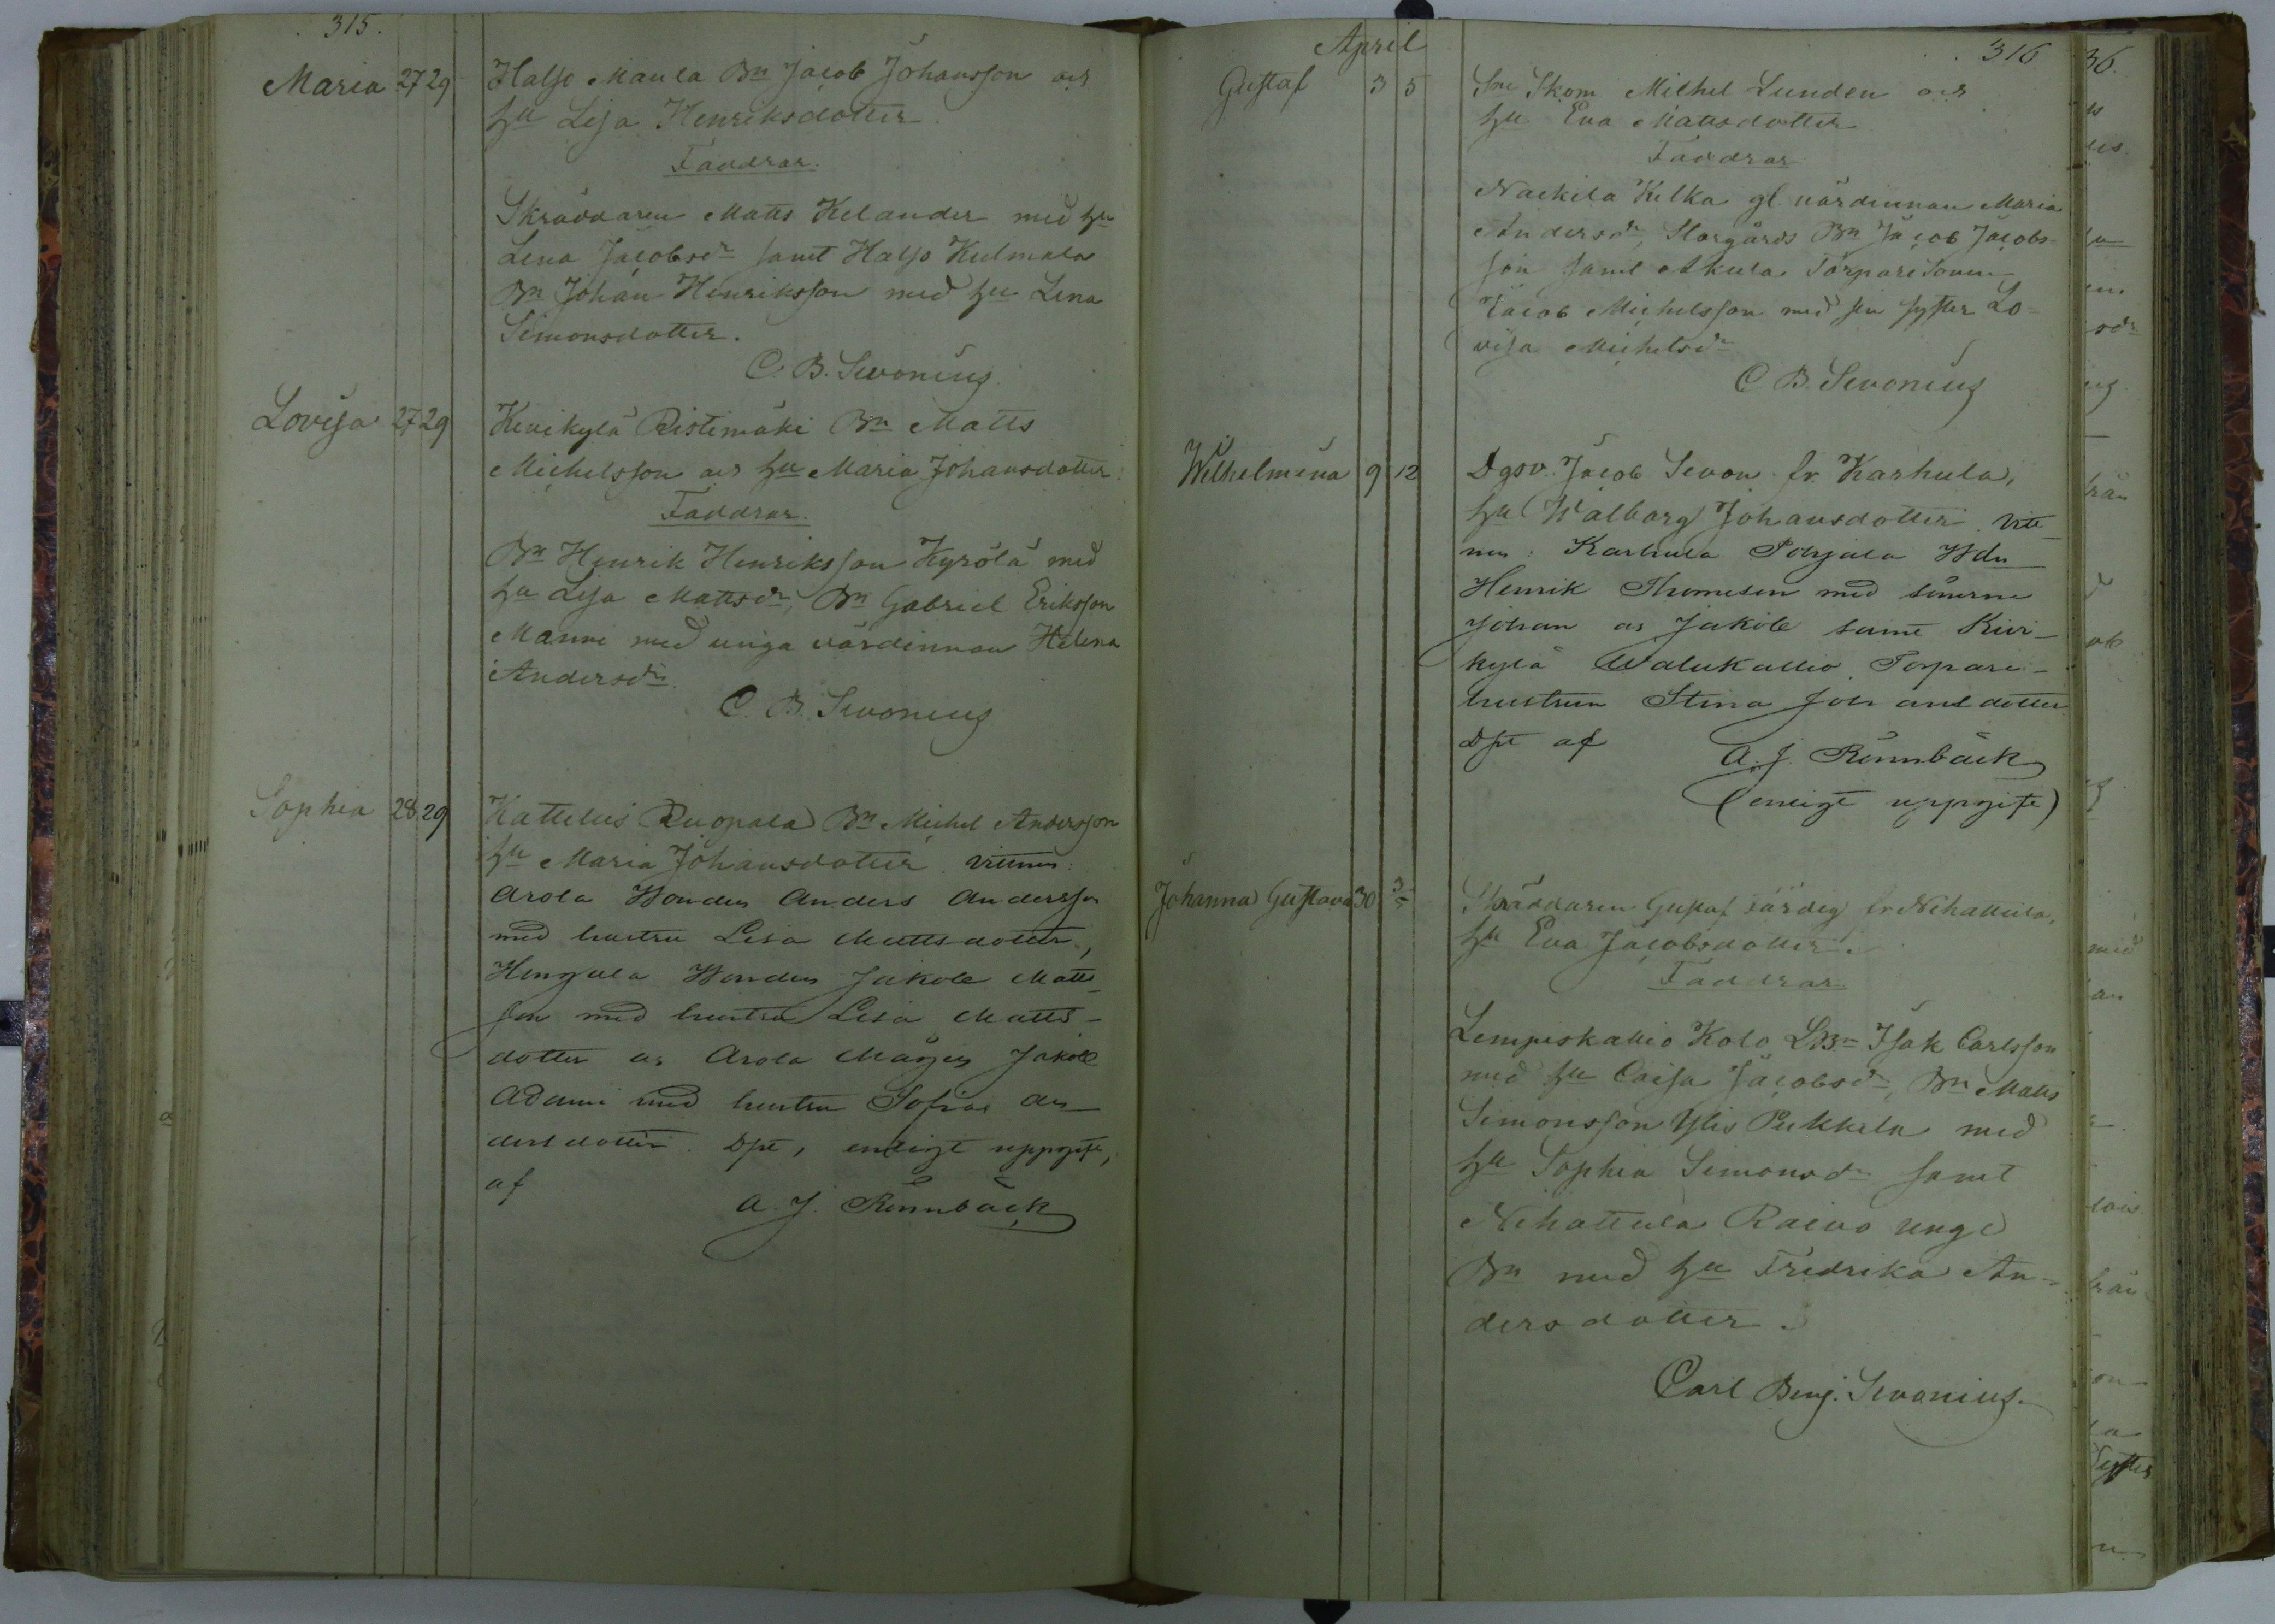 315.
Maria 27 29 Haljo Maula Bn Jacob Johansson och
hu Lisa Henriksdotter
Faddrar.
Skräddaren Matts Helander med hu
Lena Jacobsdr samt Haljo Kulmala
Bn Johan Henriksson med hu Lena
Simonsdotter.
C. B. Sevonius.
Lovisa 27 29 Kivikylä Ristimäki Bn Matts
Michelsson och hu Maria Johansdotter.
Faddrar.
Bn Henrik Henriksson Kyrölä med
hu Lisa Mattsdr, Bn Gabriel Eriksson
Manni med unga värdinnan Helena
Andersdr.
C. B. Sevonius
Sophia 28 29 Kattelus Ruopala Bn Michel Andersson
hu Maria Johansdotter. vittnen:
Arola Bonden Anders Andersson
med hustru Lisa Mattsdotter,
Bonden Jakob Matts-
son med hustru Lisa Matts-
dotter och Arola Jakob
Adami med hustru Sofia An-
dersdotter. Dpt, enligt uppgift,
af
A. J. Rönnbäck
April
316
Gustaf 3 5 Skom Michel Lunden och
hu Eva Mattsdotter
Faddrar
Nackila Kilka gl värdinnan Maria
Andersdr, Storgårds Bn Jacob Jacobs-
son samt Akula Torparesonen
Jacob Michelsson med sin syster Lo-
visa Michelsdr
C B. Sevonius
Wilhelmina 9 12 Dgsv. Jacob Sevon fr Karhula,
hu Walborg Johansdotter. Vitt-
nen: Karhula Pohjala Bdn
Henrik Thomeson med sönerne
Johan och Jakob samt Kivi-
kylä Walukallio Torpare-
hustrun Stina Johansdotter
Dpt af
A. J. Rönnbäck
(enligt uppgift)
Johanna Gustava 30 Skräddaren Gustaf Färdig fr Nihattula,
hu Eva Jacobsdotter.
Faddrar
Lempeskallio Kolo LBn Isak Carlsson
med hu Caisa Jacobsdr, Bn Matts
Simonsson Ylis Pukkila med
hu Sophia Simonsdr samt
Nihattula Raivo unge
Bn med hu Fredrika An-
dersdotter.
Carl Benj. Sevonius.